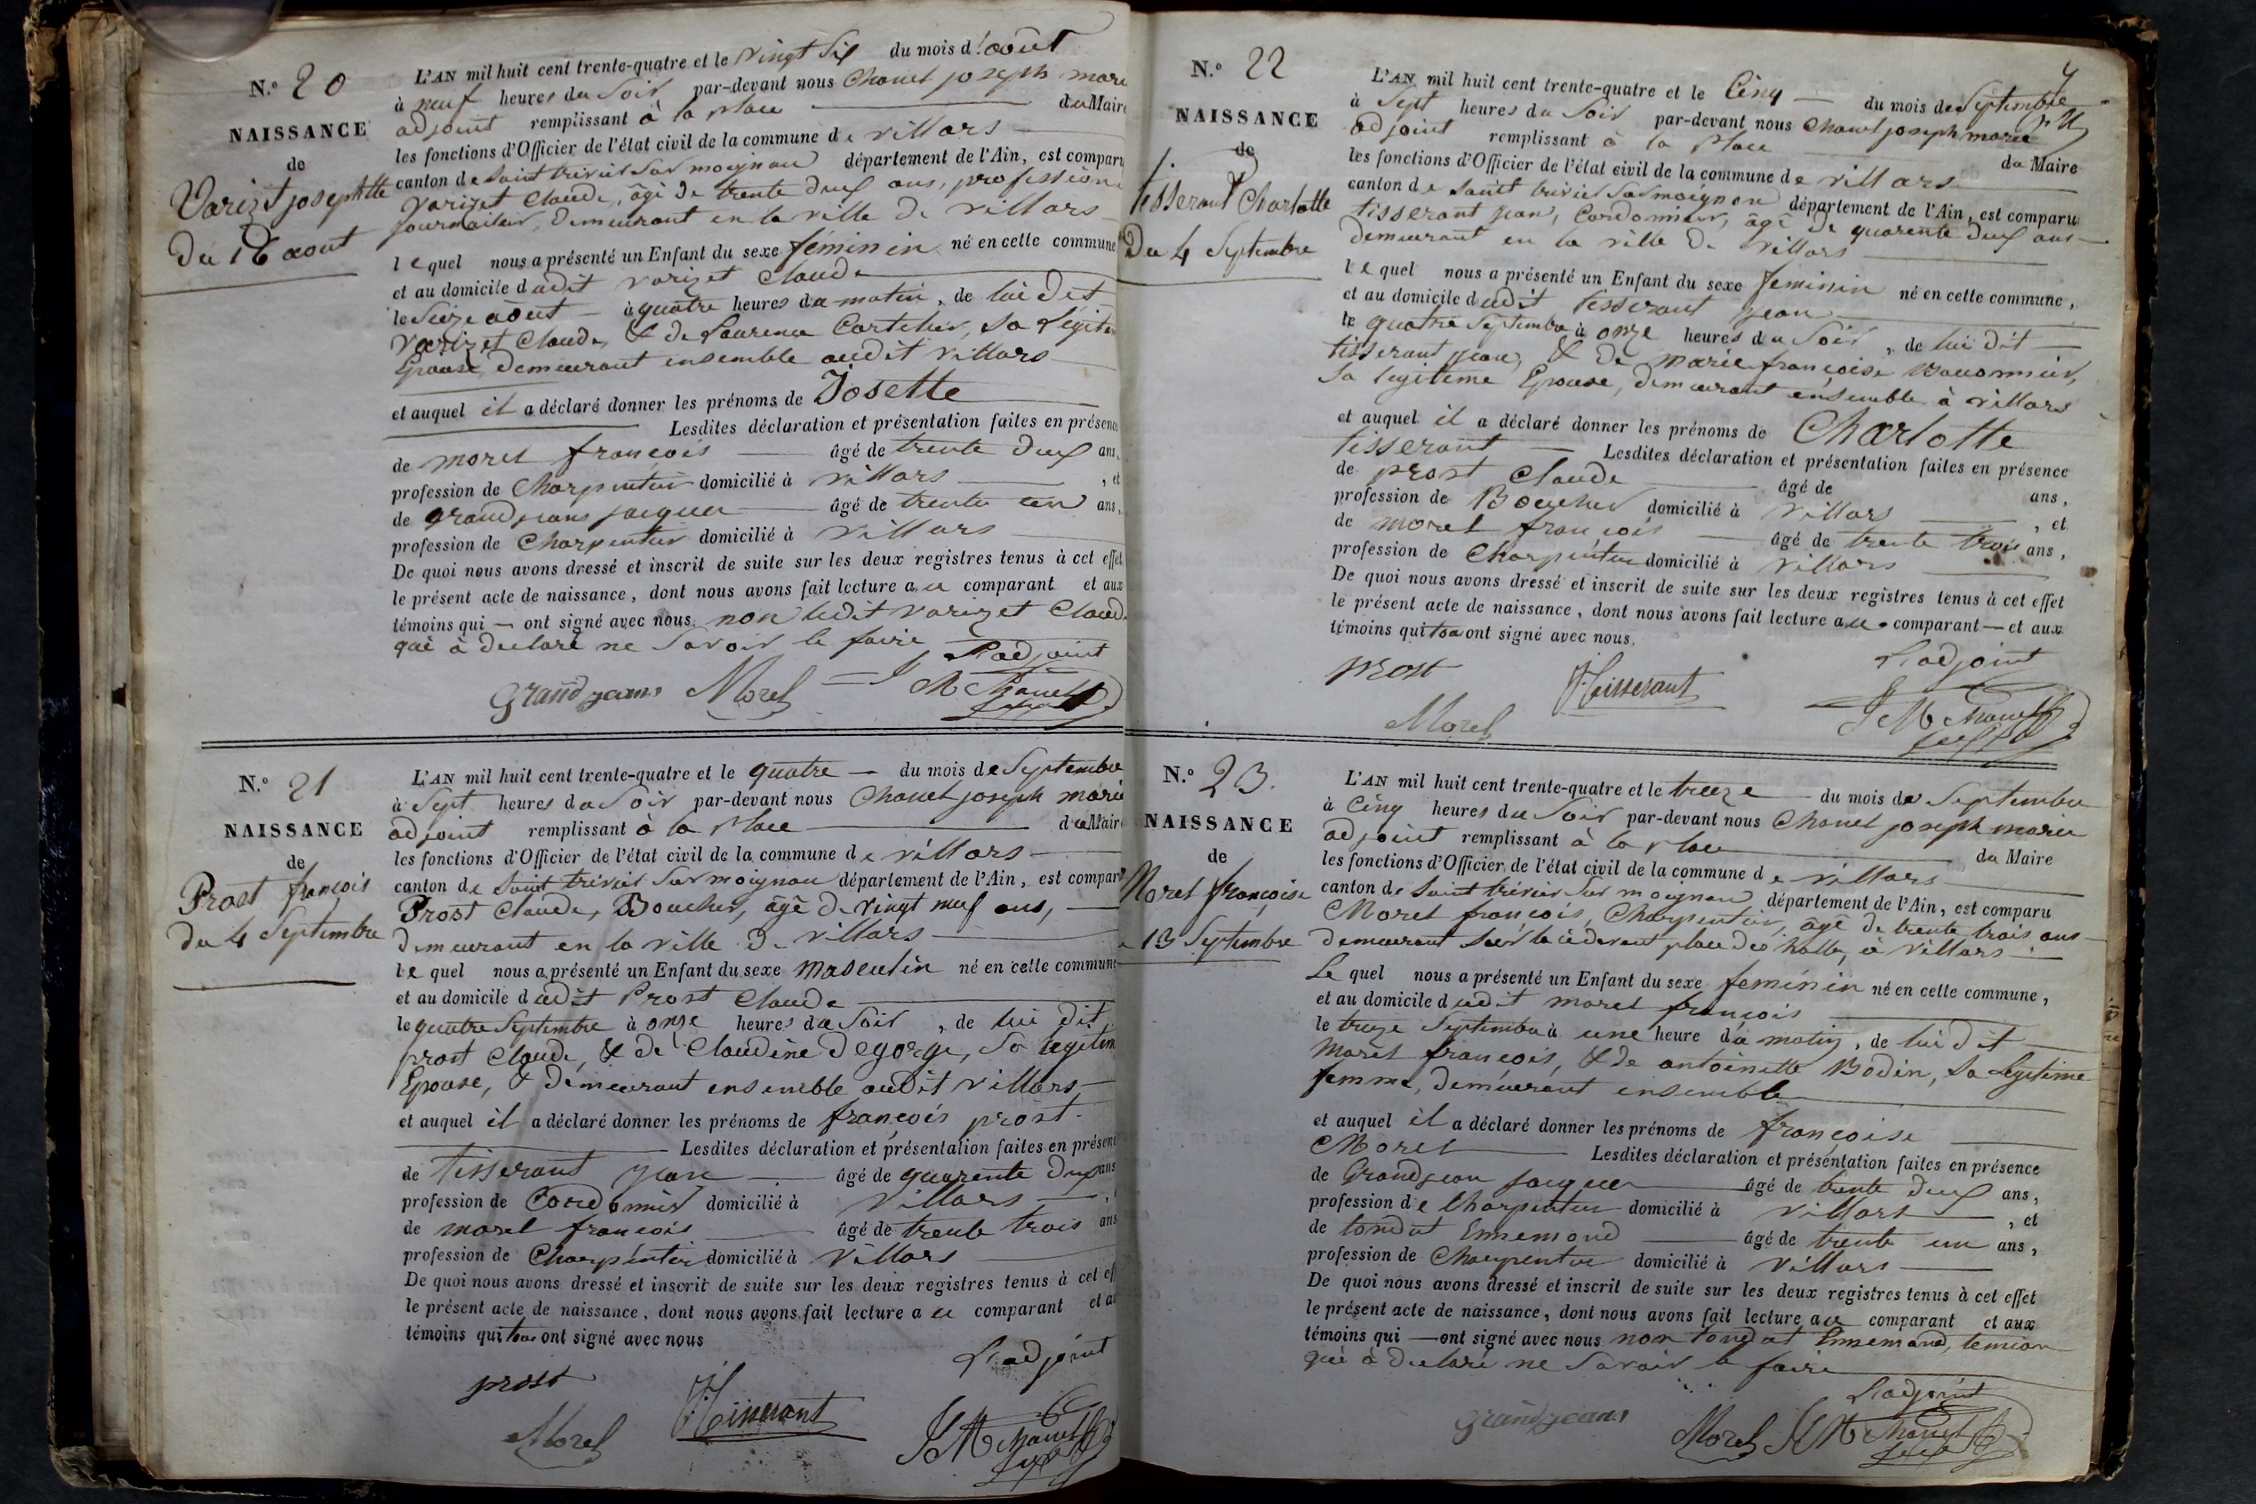 N.º 20
NAISSANCE
de
Varizet josephtte
Du 16 aout
L'AN mil huit cent trente-quatre et le vingt Six du mois d'août
à neuf heures du Soir par-devant nous Chanel joseph marie
adjoint remplissant à la place du Maire
les fonctions d'Officier de l'état civil de la commune de villars
canton de Saint trivier Sur moignan département de l'Ain, est comparu
Varizet Claude, âgé de trente deux ans, profession
journalier, demeurant en la ville de villars
lequel nous a présenté un Enfant du sexe féminin né en cette commune
et au domicile dudit varizet Claude
le Seize août à quatre heures du matin, de lui dit
Varizet Claude, & de Laurence Cartelier, Sa Légitime
Epouse, demeurant ensemble audit villars
et auquel il a déclaré donner les prénoms de Josette
Lesdites déclaration et présentation faites en présence
de morel françois âgé de trente deux ans,
profession de Charpentier domicilié à villars, et
de grandjeans jacques âgé de trente un ans,
profession de Charpentier domicilié à villars
De quoi nous avons dressé et inscrit de suite sur les deux registres tenus à cet effet
le présent acte de naissance, dont nous avons fait lecture au comparant et aux
témoins qui — ont signé avec nous non ledit varizet Claude
qui à declaré ne Savoir le faire
L'adjoint
grandjeans Morel J M Chanel
N.º 21
NAISSANCE
de
Prost françois
du 4 Septembre
L'AN mil huit cent trente-quatre et le quatre — du mois de Septembre
à Sept heures du Soir par-devant nous Chanel joseph marie
adjoint remplissant à la place du Maire
les fonctions d'Officier de l'état civil de la commune de villars
canton de Saint trivier Sur moignan département de l'Ain, est comparu
Prost Claude, Boucher, âgé de vingt neuf ans,
demeurant en la ville de villars
lequel nous a présenté un Enfant du sexe masculin né en cette commune
et au domicile dudit Prost Claude
le quatre Septembre à onze heures du Soir, de lui dit
prost Claude, & de Claudine Degorge, Sa legitime
Epouse, & demeurant ensemble audit villars
et auquel il a déclaré donner les prénoms de françois prost
Lesdites déclaration et présentation faites en présence
de tisserant jean âgé de quarente deux ans
profession de Cordonnier domicilié à villars,
de morel françois âgé de trente trois ans
profession de Charpentier domicilié à villars
De quoi nous avons dressé et inscrit de suite sur les deux registres tenus à cet eff
le présent acte de naissance, dont nous avons fait lecture au comparant et au
témoins qui tous ont signé avec nous
L'adjoint
prost
Morel Tisserant J M Chanel
N.º 22
NAISSANCE
de
tisserant Charlotte
Du 4 Septembre
L'AN mil huit cent trente-quatre et le Cinq — du mois de Septembre
à Sept heures du Soir par-devant nous Chanel joseph marie
adjoint remplissant à la place du Maire
les fonctions d'Officier de l'état civil de la commune de villars
canton de Saint trivier Sur moignan département de l'Ain, est comparu
tisserant jean, Cordonnier, âgé de quarente deux ans
demeurant en la ville de villars
lequel nous a présenté un Enfant du sexe feminin né en cette commune,
et au domicile dudit tisserant jean
le quatre Septembre à onze heures du Soir, de lui dit
tisserant jean, & de marie françoise Bouonnier,
Sa legitime Epouse, demeurant ensemble à villars
et auquel il a déclaré donner les prénoms de Charlotte
tisserant Lesdites déclaration et présentation faites en présence
de prost Claude âgé de ans,
profession de Boucher domicilié à villars, et
de morel françois âgé de trente trois ans,
profession de Charpentier domicilié à villars
De quoi nous avons dressé et inscrit de suite sur les deux registres tenus à cet effet
le présent acte de naissance, dont nous avons fait lecture au comparant — et aux
témoins qui tous ont signé avec nous.
L'adjoint
prost Tisserant
Morel J M Chanel
N.º 23.
NAISSANCE
de
Morel françoise
13 Septembre
L'AN mil huit cent trente-quatre et le treize du mois de Septembre
à Cinq heures du Soir par-devant nous Chanel joseph marie
adjoint remplissant à la place du Maire
les fonctions d'Officier de l'état civil de la commune de villars
canton de Saint trivier Sur moignan département de l'Ain, est comparu
Morel françois, Charpentier, âgé de trente trois ans
demeurant Sur la cidevant place des halles, à villars
Le quel nous a présenté un Enfant du sexe feminin né en cette commune,
et au domicile dudit morel françois
le treize Septembre à une heure du matin, de lui dit
Morel françois, & de antoinette Bodin, Sa Legitime
femme, demeurant ensemble
et auquel il a déclaré donner les prénoms de françoise
Morel Lesdites déclaration et présentation faites en présence
de Grandjean jacques âgé de trente deux ans,
profession de Charpentier domicilié à villars, et
de tondut Ennemond âgé de trente un ans,
profession de Charpentier domicilié à villars
De quoi nous avons dressé et inscrit de suite sur les deux registres tenus à cet effet
le présent acte de naissance, dont nous avons fait lecture au comparant et aux
témoins qui — ont signé avec nous non tondut Ennemond, temoin
qui à declaré ne Savoir le faire
L'adjoint
grandjeans Morel J M Chanel